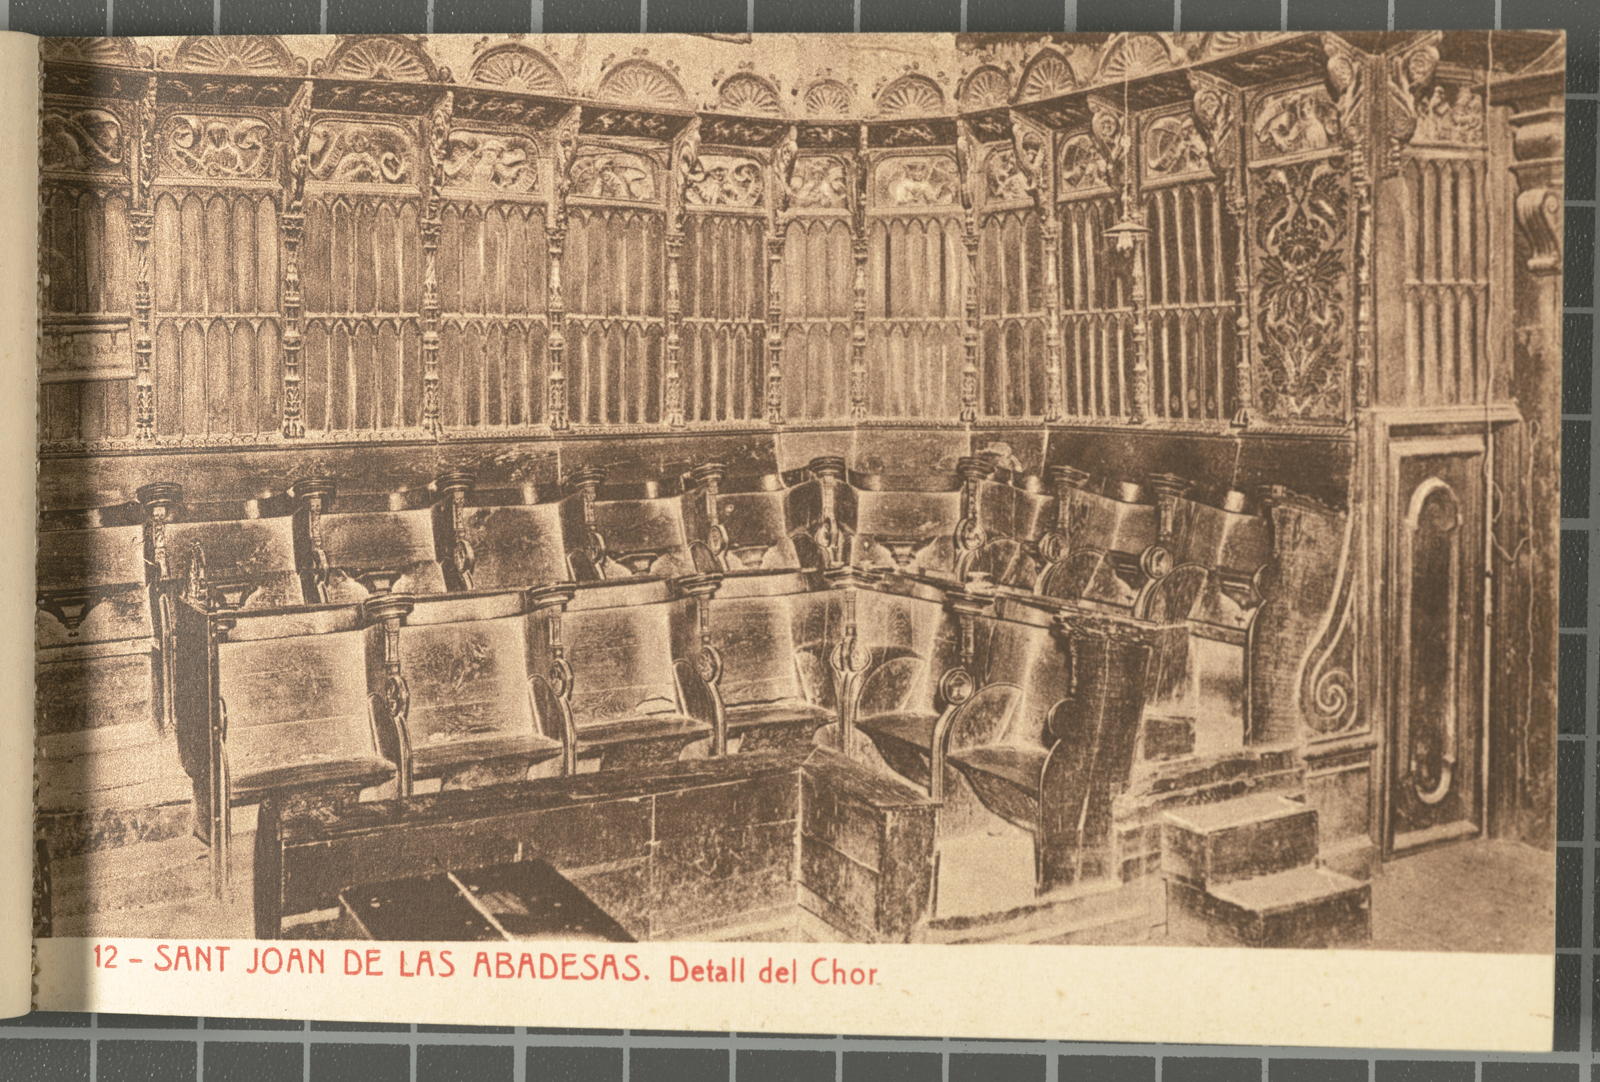 12 - SANT JOAN DE LAS ABADESAS. Detall del Chor.